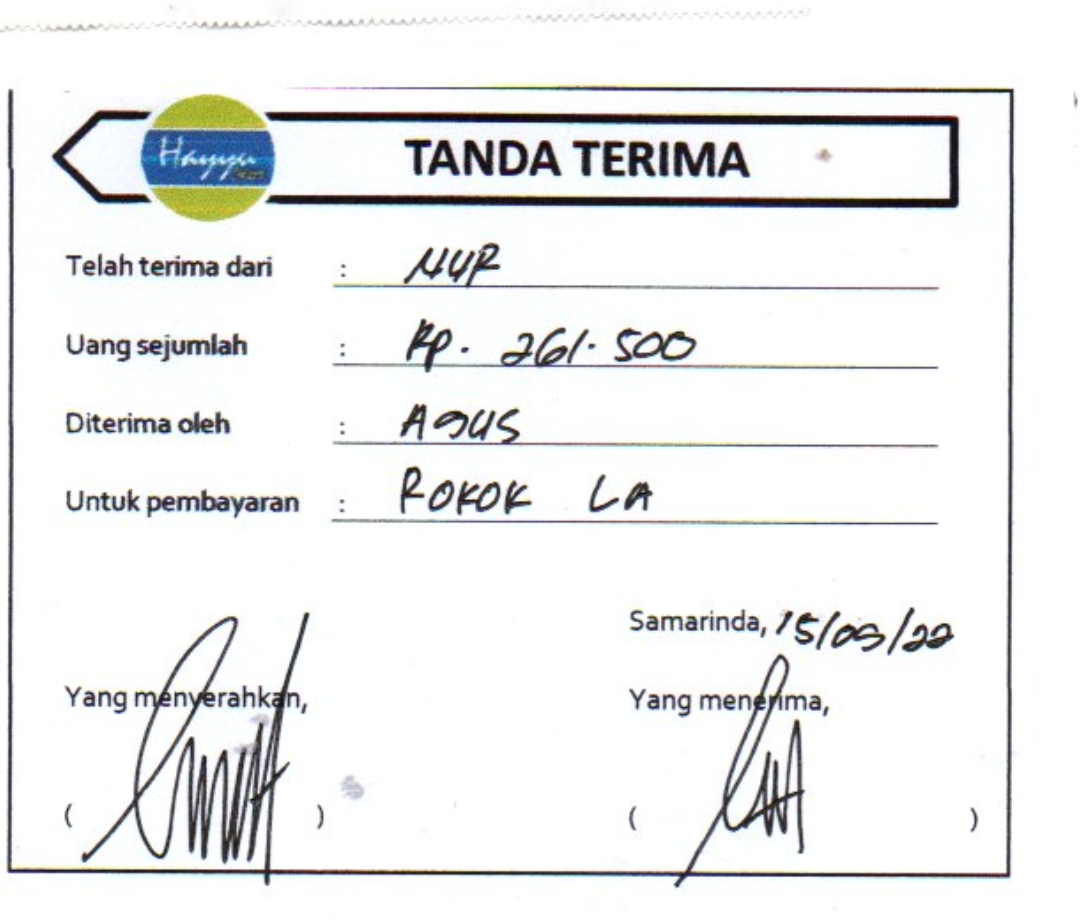 Hayyu
TANDA TERIMA
Telah terima dari : NUR
Uang sejumlah : Rp. 261.500
Diterima oleh : AGUS
Untuk pembayaran : ROKOK LA
Samarinda, 15/09/22
Yang menyerahkan,
Yang menerima,
( )
( )